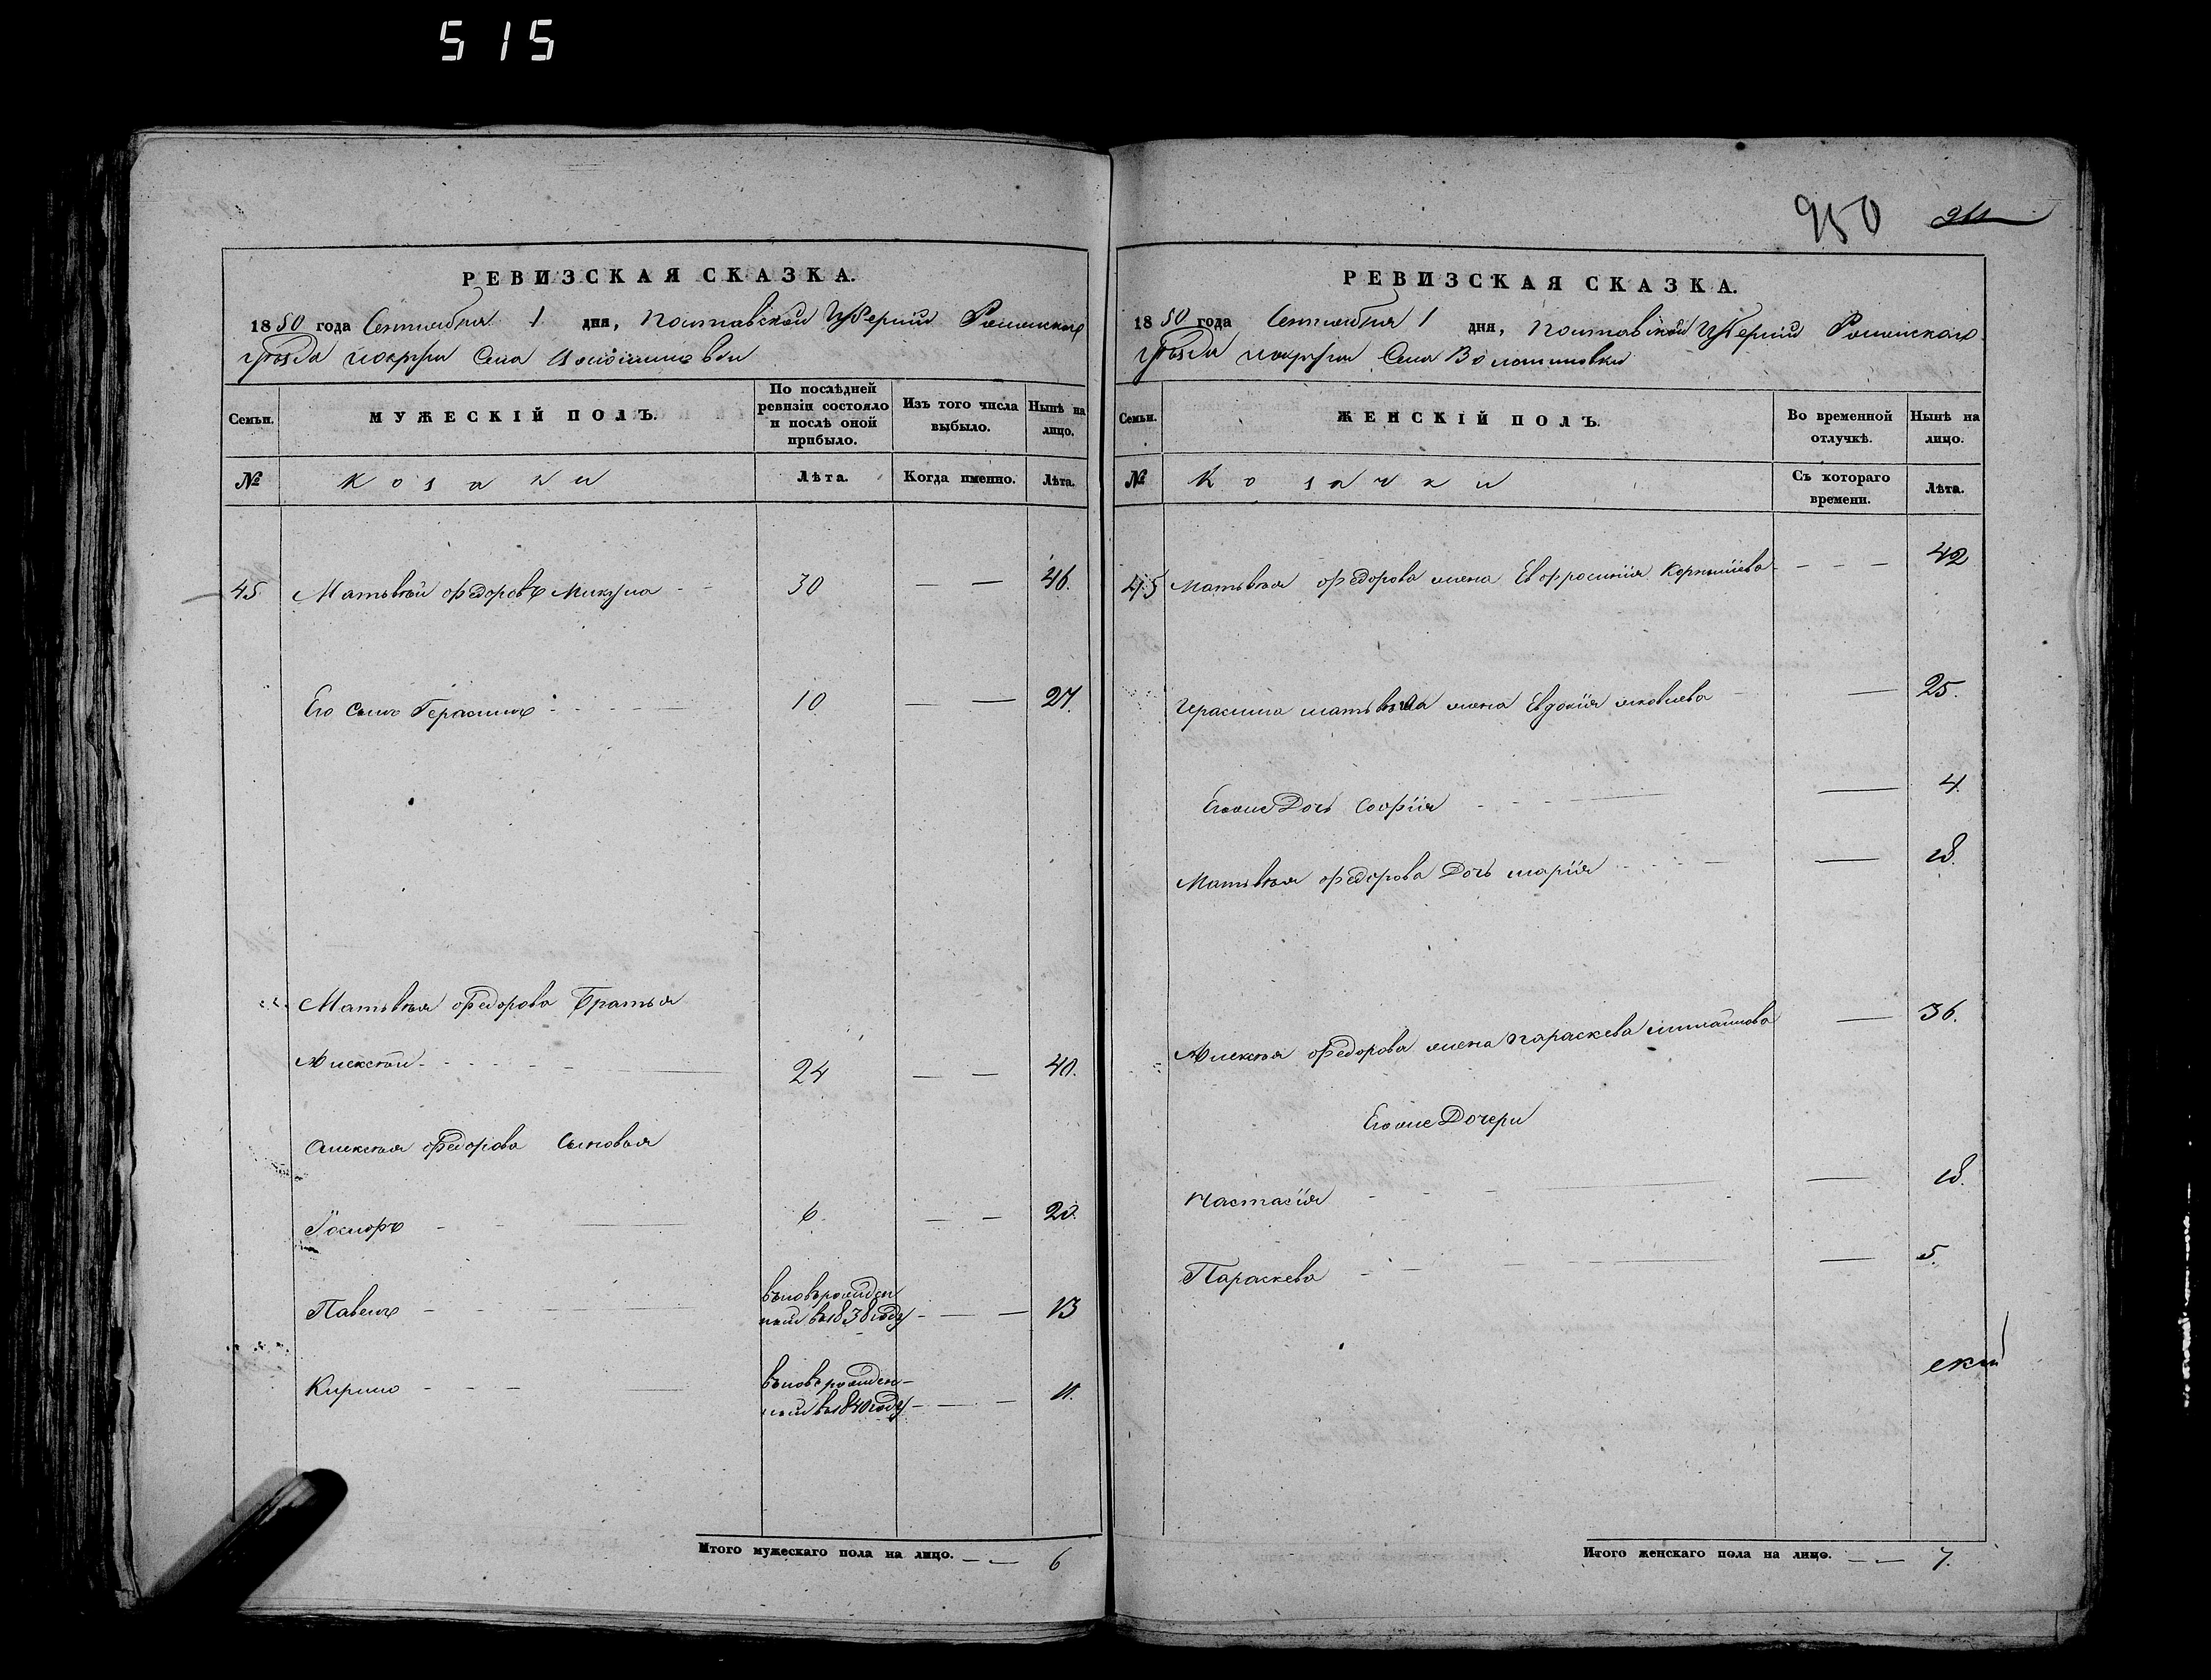 515
РЕВИЗСКАЯ СКАЗКА.
1850 года Сентября 1 дня, Полтавской Губерніи Роменскаго
уѣзда Села
Семьи.
МУЖЕСКІЙ ПОЛЪ.
По послѣдней ревизіи состояло и послѣ оной прибыло.
Изъ того числа выбыло.
Нынѣ на лицо.
№
Козаки
Лѣта.
Когда именно.
Лѣта.
45 Матьвѣй Федоровъ Микула 30 46.
Его Сынъ Герасимъ 10. 27.
Матьвѣя Федорова Братья
Алексѣй 24 40.
Алексѣя Федорова Сыновья
6.
Павелъ вновьрожденный въ 1838 году 13
Кирило вновьрожденный въ 1840 году 11.
Итого мужескаго пола на лицо. 6
950
РЕВИЗСКАЯ СКАЗКА.
1850 года Сентября 1 дня, Полтавской Губерніи Роменскаго
уѣзда Села Волошиновки
Семьи.
ЖЕНСКІЙ ПОЛЪ.
Во временной отлучкѣ.
Нынѣ на лицо.
№
Козачки
Съ котораго времени.
Лѣта.
45 Матьвѣя Федорова жена Евфросинія 42
Герасима Матьвѣева жена Евдокія Яковлева 25.
Егоже Дочь Софія 4.
Матьвѣя Федорова Дочь Марія 18.
Алексѣя Федорова жена Параскева 36.
Егоже Дочери
Настасія 18.
Параскева 5.
Итого женскаго пола на лицо. 7.